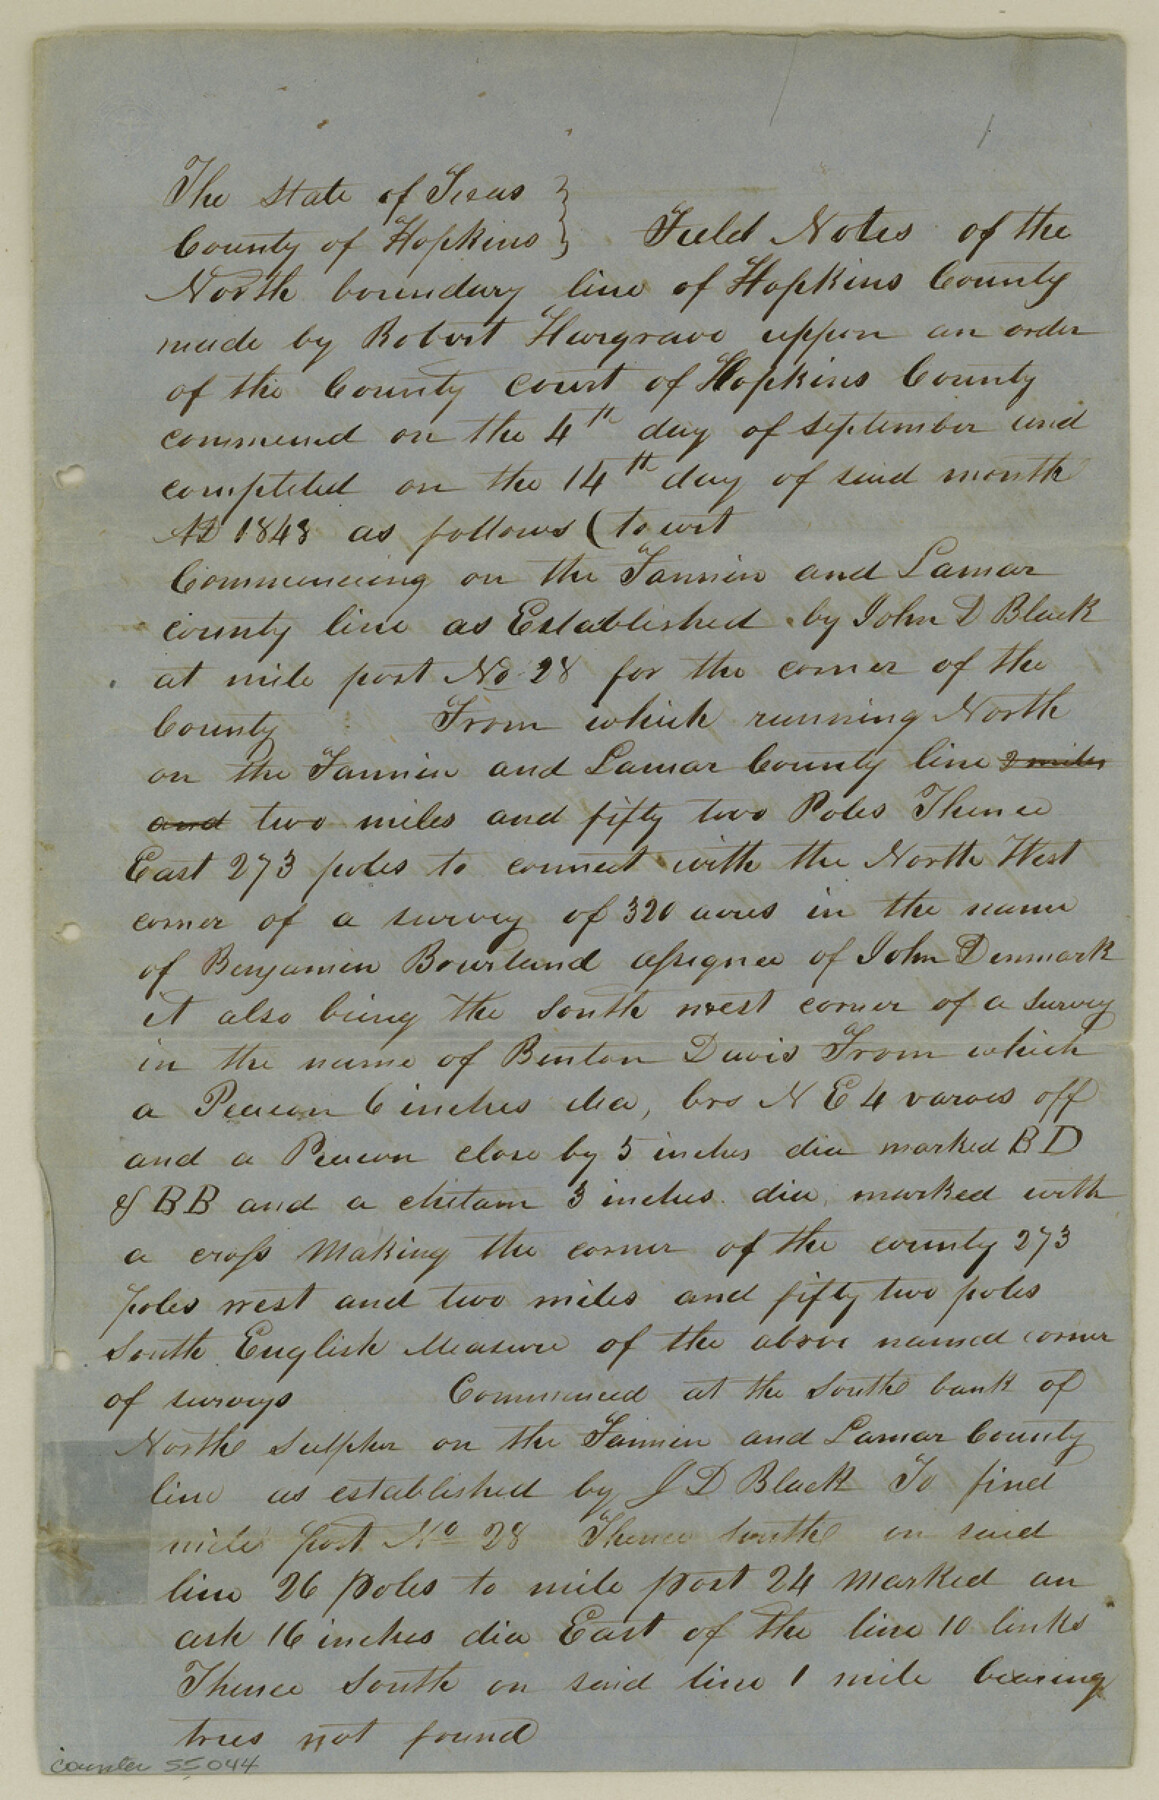 1
The State of Texas }
County of Hopkins } Field Notes of the
North boundary line of Hopkins County
made by Robert Hargrave uppon an order
of the County court of Hopkins County
commencd on the 4th day of september and
completed on the 14th day of said month
AD 1848 as follows (to wit
Commencing on the Fannin and Lamar
county line as Established by John D Black
at mile post No 28 for the corner of the
County From which running North
on the Fannin and Lamar County line 2 miles
and two miles and fifty two Poles Thence
East 273 poles to connect with the North West
corner of a survey of 320 acres in the name
of Benjamin Bourland assignee of John Denmark
it also being the South west corner of a Survey
in the name of Benton Davis From which
a Peacon 6 inches dia, brs N E 4 varaes off
and a Peacon close by 5 inches dia marked B D
& B B and a elnlam 3 inches dia marked with
a cross Making the corner of the county 273
poles west and two miles and fifty two poles
South English Measure of the above named corner
of surveys Commenced at the South bank of
North Sulpher on the Fannin and Lamar County
line as established by J D Black To find
mile post No 28 Thence South on said
line 26 poles to mile post 24 Marked an
ash 16 inches dia East of the line 10 links
Thence South on said line 1 mile bearing
trees not found
counter 55044